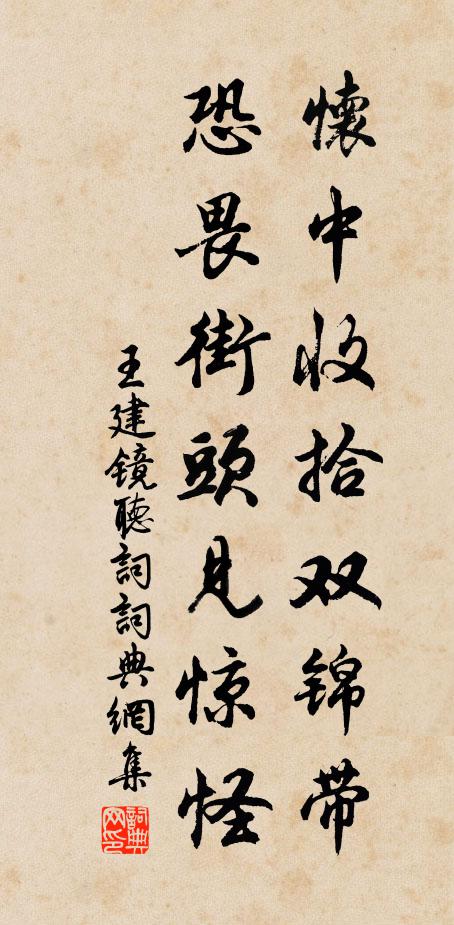 懷中收拾双锦带
恐畏街頭見惊怪
王建镜聽詞詞典網集
詞典网印